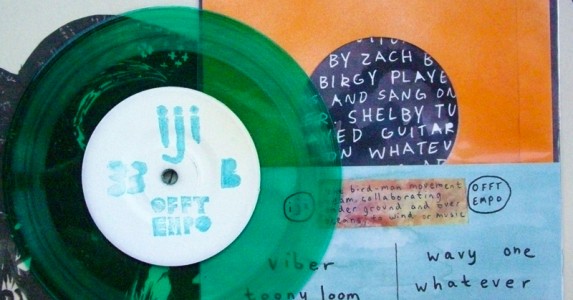 iji
33 B
OFFT
EMPO
BY ZACH B
BIRGY PLAYE
AND SANG ON
SHELBY TU
ED GUITAR
ON WHATEV
iji
bird-man movement
team collaborating
under ground and over
wind or music
OFFT
EMPO
viber
toony loom
wavy one
whatever